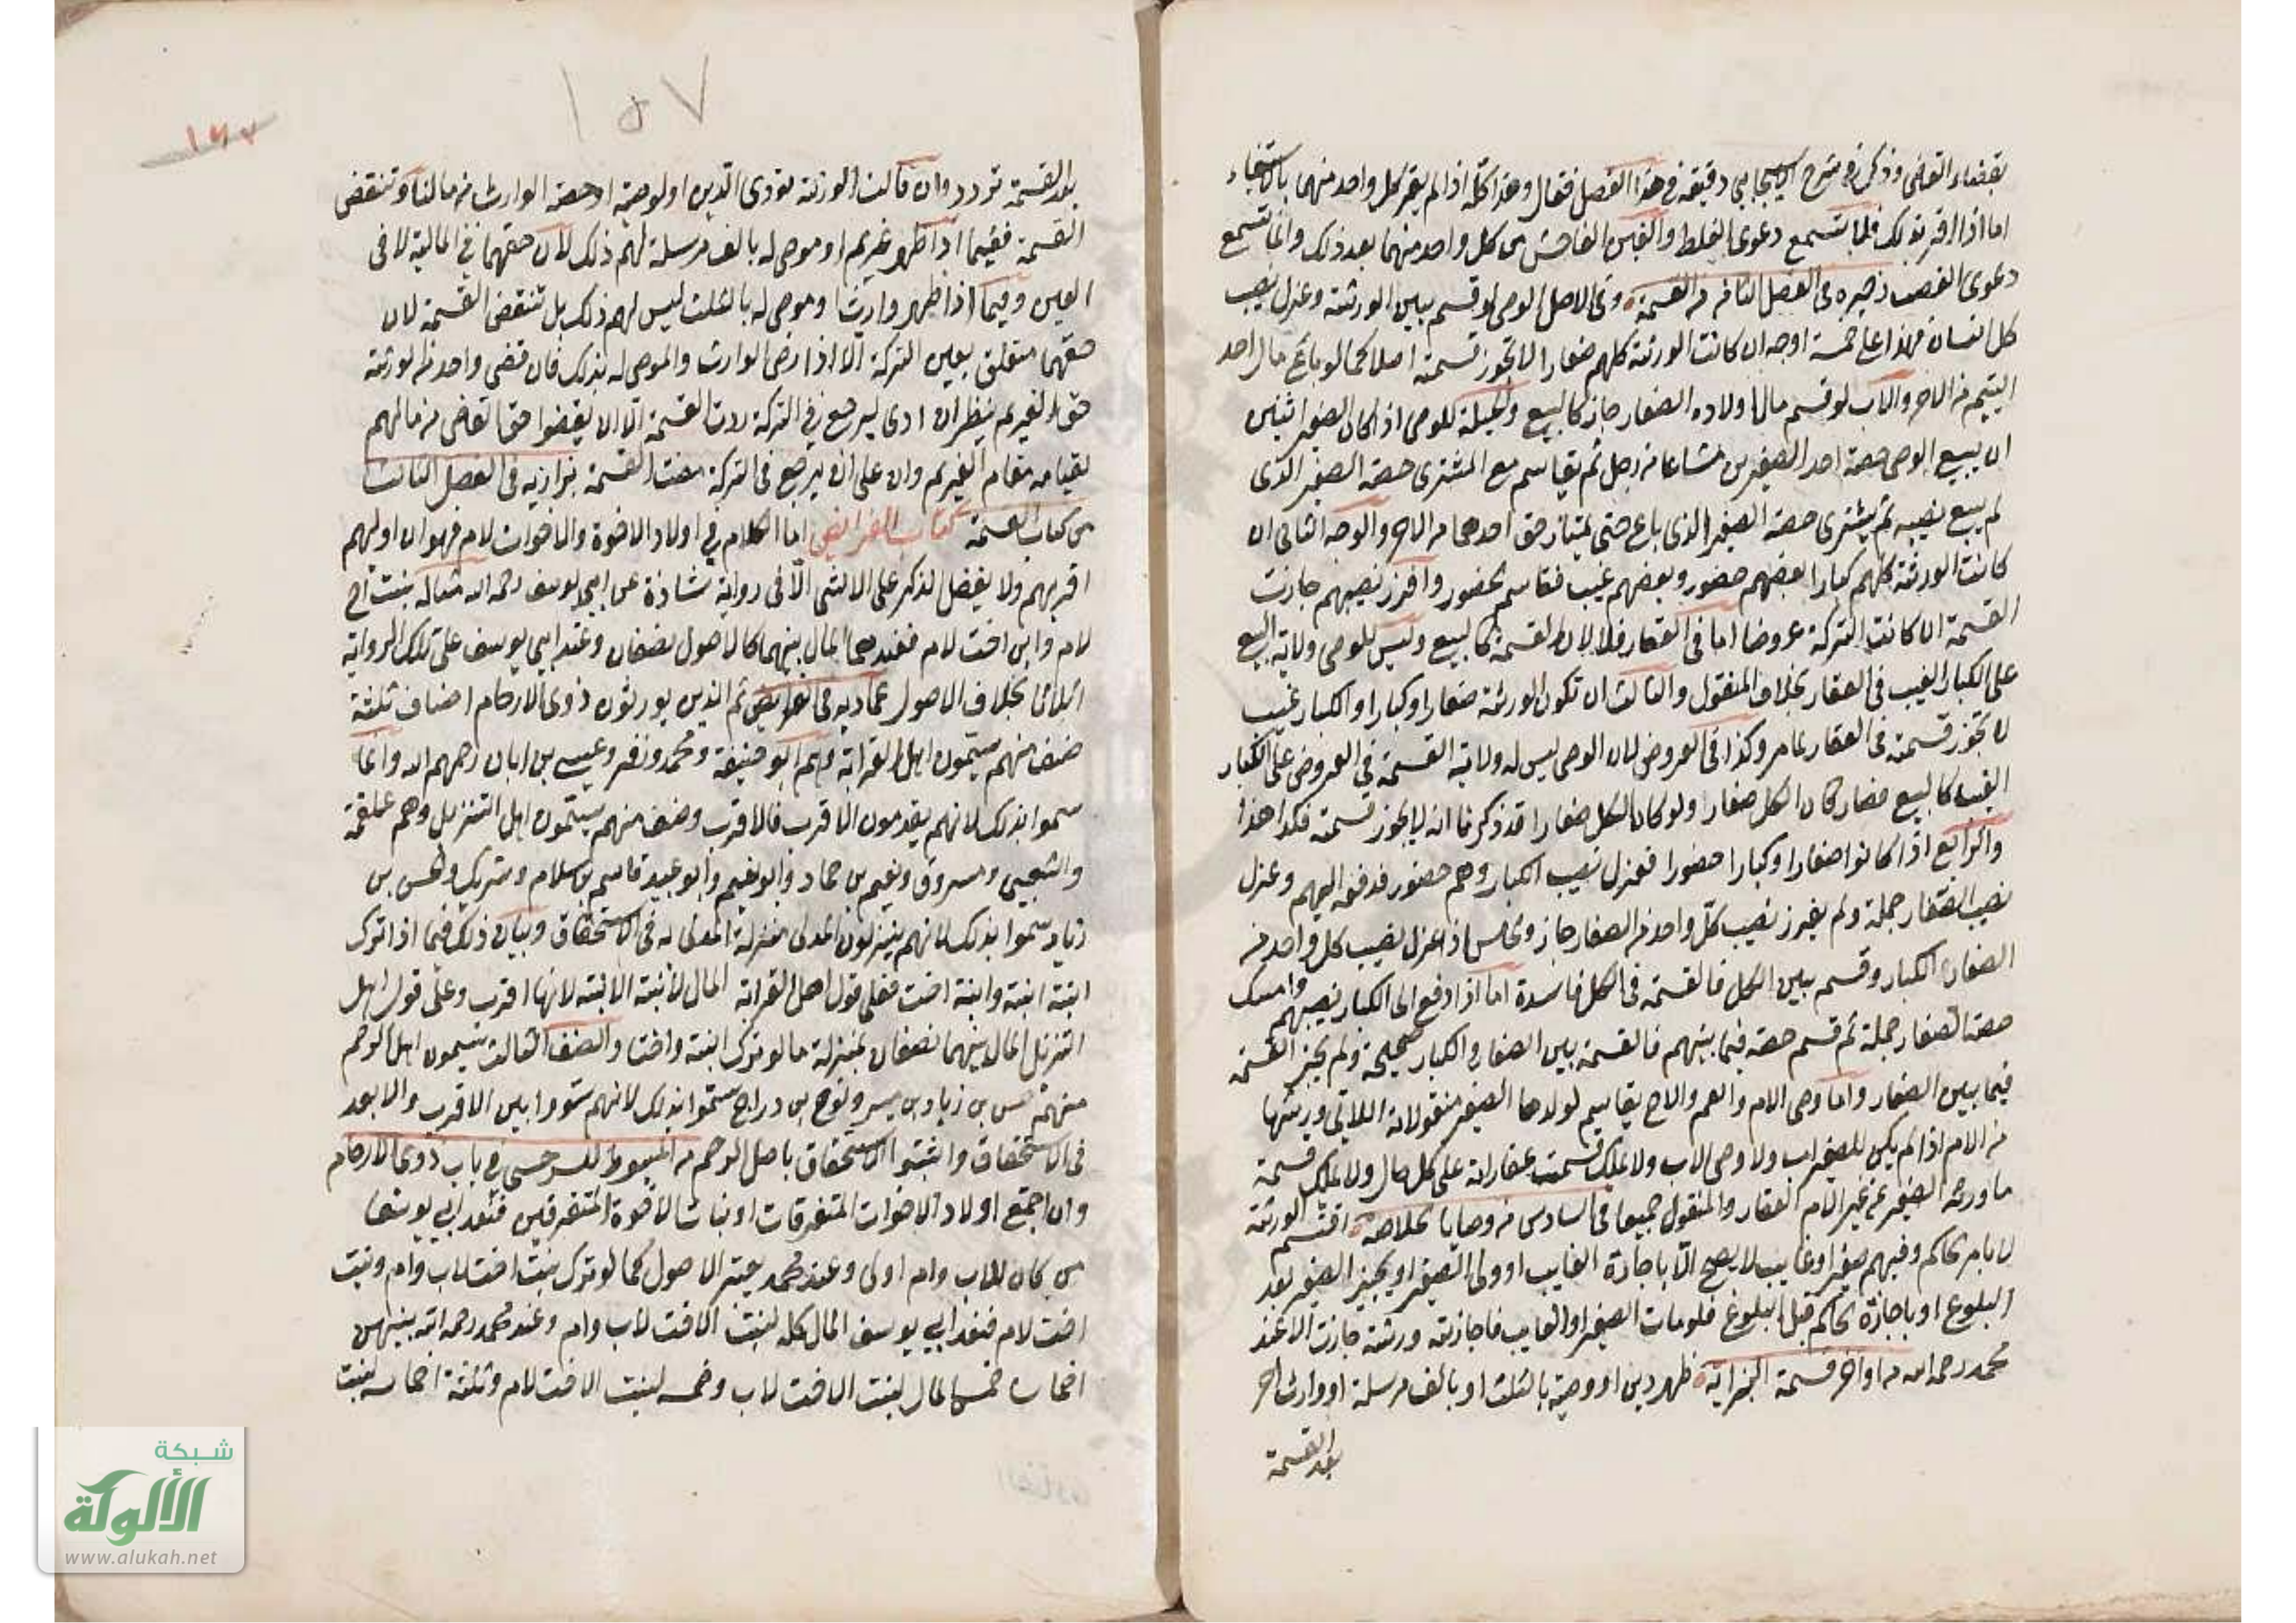 بقضاء القاضي وذكر في شرح الاسبيجابي دقيقة في هذا الفصل فقال وهذا كله اذا لم يقر كل واحد منهما بالاستيفاء
اما اذا اقر بذلك فلما تسمع دعوى الغلط والغبن الفاحش من كل واحد منهما بعد ذلك وانما تسمع
دعوى الغصب ذخيره في الفصل التاسع من القسمة وفي الاصل الوصي لو قسم بين الورثة وعزل نصيب
كل انسان فهذا على خمسة اوجه ان كانت الورثة كلهم صغارا لا تجوز قسمته اصلا كما لو باع مال احد
اليتيم من الاخر والاب لو قسم مال اولاده الصغار جاز كالبيع والحيلة للوصي اذا كان الصغير اثنين
ان يبيع الوصي حصة احد الصغيرين مشاعا من رجل ثم يقاسم مع المشتري حصة الصغير الذي
لم يبيع نصيبه ثم يشتري حصة الصغير الذي باع حتى يمتاز حق احدهما من الاخر والوجه الثاني ان
كانت الورثة كلهم كبارا بعضهم حضور وبعضهم غيب فقاسم الحضور وافرز نصيبهم جازت
القسمة ان كانت التركة عروضا اما في العقار فلا لان القسمة كالبيع وليس للوصي ولاية البيع
على الكبار الغيب في العقار بخلاف المنقول والثالث ان تكون الورثة صغارا وكبارا والكبار غيب
لا تجوز قسمته في العقار لما مر وكذا في العروض لان الوصي ليس له ولاية القسمة في العروض على الكبار
الغيب كالبيع فصار كان الكل صغار ولو كان الكل صغارا قد ذكرنا انه لا يجوز قسمته فكذا هذا
والرابع اذا كانوا صغارا وكبارا حضورا فعزل نصيب الكبار وهم حضور فدفعه اليهم وعزل
نصيب الصغار جملة ولم يفرز نصيب كل واحد من الصغار جاز والخامس اذا عزل نصيب كل واحد من
الصغار والكبار وقسم بين الكل فالقسمة في الكل فاسدة اما اذا دفع الى الكبار نصيبهم وامسك
حصة الصغار جملة ثم قسم حصة فيما بينهم فالقسمة بين الصغار والكبار صحيحة ولم يجز القسمة
فيما بين الصغار واما وصي الام والعم والاخ يقاسم لولدها الصغير منقولاته اللاتي ورثها
من الام اذا لم يكن للصغير اب ولا وصي الاب ولا يملك قسمت عقاراته على كل حال ولا يملك قسمة
ما ورثه الصغير من غير الام العقار والمنقول جميعا في السادس من وصايا خلاصة اقتسم الورثة
لا بامر الحاكم وفيهم صغير او غايب لا يصح الا باجازة الغايب او ولي الصغير او يجيز الصغير بعد
البلوغ او باجازة الحاكم قبل البلوغ فلو مات الصغير او الغايب فاجازته ورثته جازت الا عند
محمد رحمه الله من اواخر قسمة البزازية ظهر دين او وصية بالثلث او بالف مرسلة او وارث اخر
بعد القسمة
١٥٧
١٤٧
بعد القسمة تردد وان قالت الورثة نؤدى الدين او الوصية او حصة الوارث من مالنا وتنقض
القسمة ففيما اذا ظهر غريم او موصى له بالف مرسلة لهم ذلك لان حقهما في المالية لا في
العين وفيما اذا ظهر وارثا وموصى له بالثلث ليس لهم ذلك بل تنقض القسمة لان
حقهما متعلق بعين التركة الا اذا رضى الوارث والموصى له بذلك فان قضى واحد من الورثة
حق الغريم ينظر ان ادى ليرجع في التركة ردت القسمة الا ان يقضوا حق القاضي من مالهم
لقيامه مقام الغريم وان على ان لا يرجع في التركة مضت القسمة بزازيه في الفصل الثالث
من كتاب القسمة كتاب الفرائض اما الكلام في اولاد الاخوة والاخوات لام فهو ان اولهم
اقربهم ولا يفضل الذكر على الانثى الا في رواية شاذة عن ابي يوسف رحمه الله مثاله بنت اخ
لام وابن اخت لام فعندهما المال بينهما كالاصول نصفان وعند ابي يوسف على تلك الرواية
اثلاثا بخلاف الاصول عماديه في الفرائض ثم الذين يورثون ذوى الارحام اصناف ثلثة
صنف منهم يسمون اهل القرابة وهم ابو حنيفة ومحمد وزفر وعيسى بن ابان رحمهم الله وانما
سموا بذلك لانهم يقدمون الاقرب فالاقرب وصنف منهم يسمون اهل التنزيل وهم علقمة
والشعبي ومسروق ونعيم بن حماد وابو نعيم وابو عبيد قاسم بن سلام وشريك والحسن بن
زياد سموا بذلك لانهم ينزلون المدلى منزلة المدلى به في الاستحقاق وبيان ذلك فيما اذا ترك
ابنة ابنة وابنة اخت فعلى قول اهل القرابة المال لابنة الابنة لانها اقرب وعلى قول اهل
التنزيل المال بينهما نصفان بمنزلة ما لو ترك ابنة واختا والصنف الثالث يسمون اهل الرحم
منهم حسن بن زياد بن ميسر ونوح بن دراج سموا بذلك لانهم سووا بين الاقرب والابعد
في الاستحقاق واثبتوا الاستحقاق باصل الرحم من المبسوط للسرخسي في باب ذوى الارحام
وان اجتمع اولاد الاخوات المتفرقات او بنات الاخوة المتفرقين فعند ابي يوسف
من كان لاب وام اولى وعند محمد يعتبر الاصول كما لو ترك بنت اخت لاب وام وبنت
اخت لام فعند ابي يوسف المال كله لبنت الاخت لاب وام وعند محمد رحمه الله بينهن
اخماسا خمس المال لبنت الاخت لاب وخمسه لبنت الاخت لام وثلثة اخماسه لبنت
شبكة
الألوكة
www.alukah.net